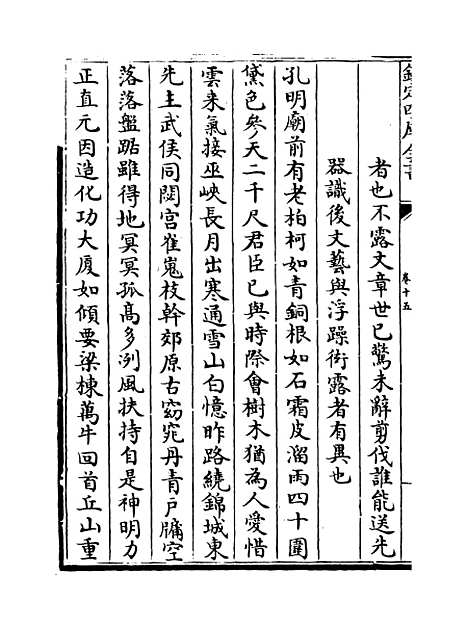 欽定四庫全書
卷十五
者也不露文章世已驚未辭剪伐誰能送先
器識後文藝與浮躁衒露者有異也
孔明廟前有老柏柯如青銅根如石霜皮溜雨四十圍
黛色參天二千尺君臣已與時際會樹木猶為人愛惜
雲來氣接巫峽長月出寒通雪山白憶昨路繞錦城東
先主武侯同閟宮崔嵬枝幹郊原古窈窕丹青戶牖空
落落盤踞雖得地冥冥孤高多冽風扶持自是神明力
正直元因造化功大廈如傾要梁棟萬牛回首丘山重